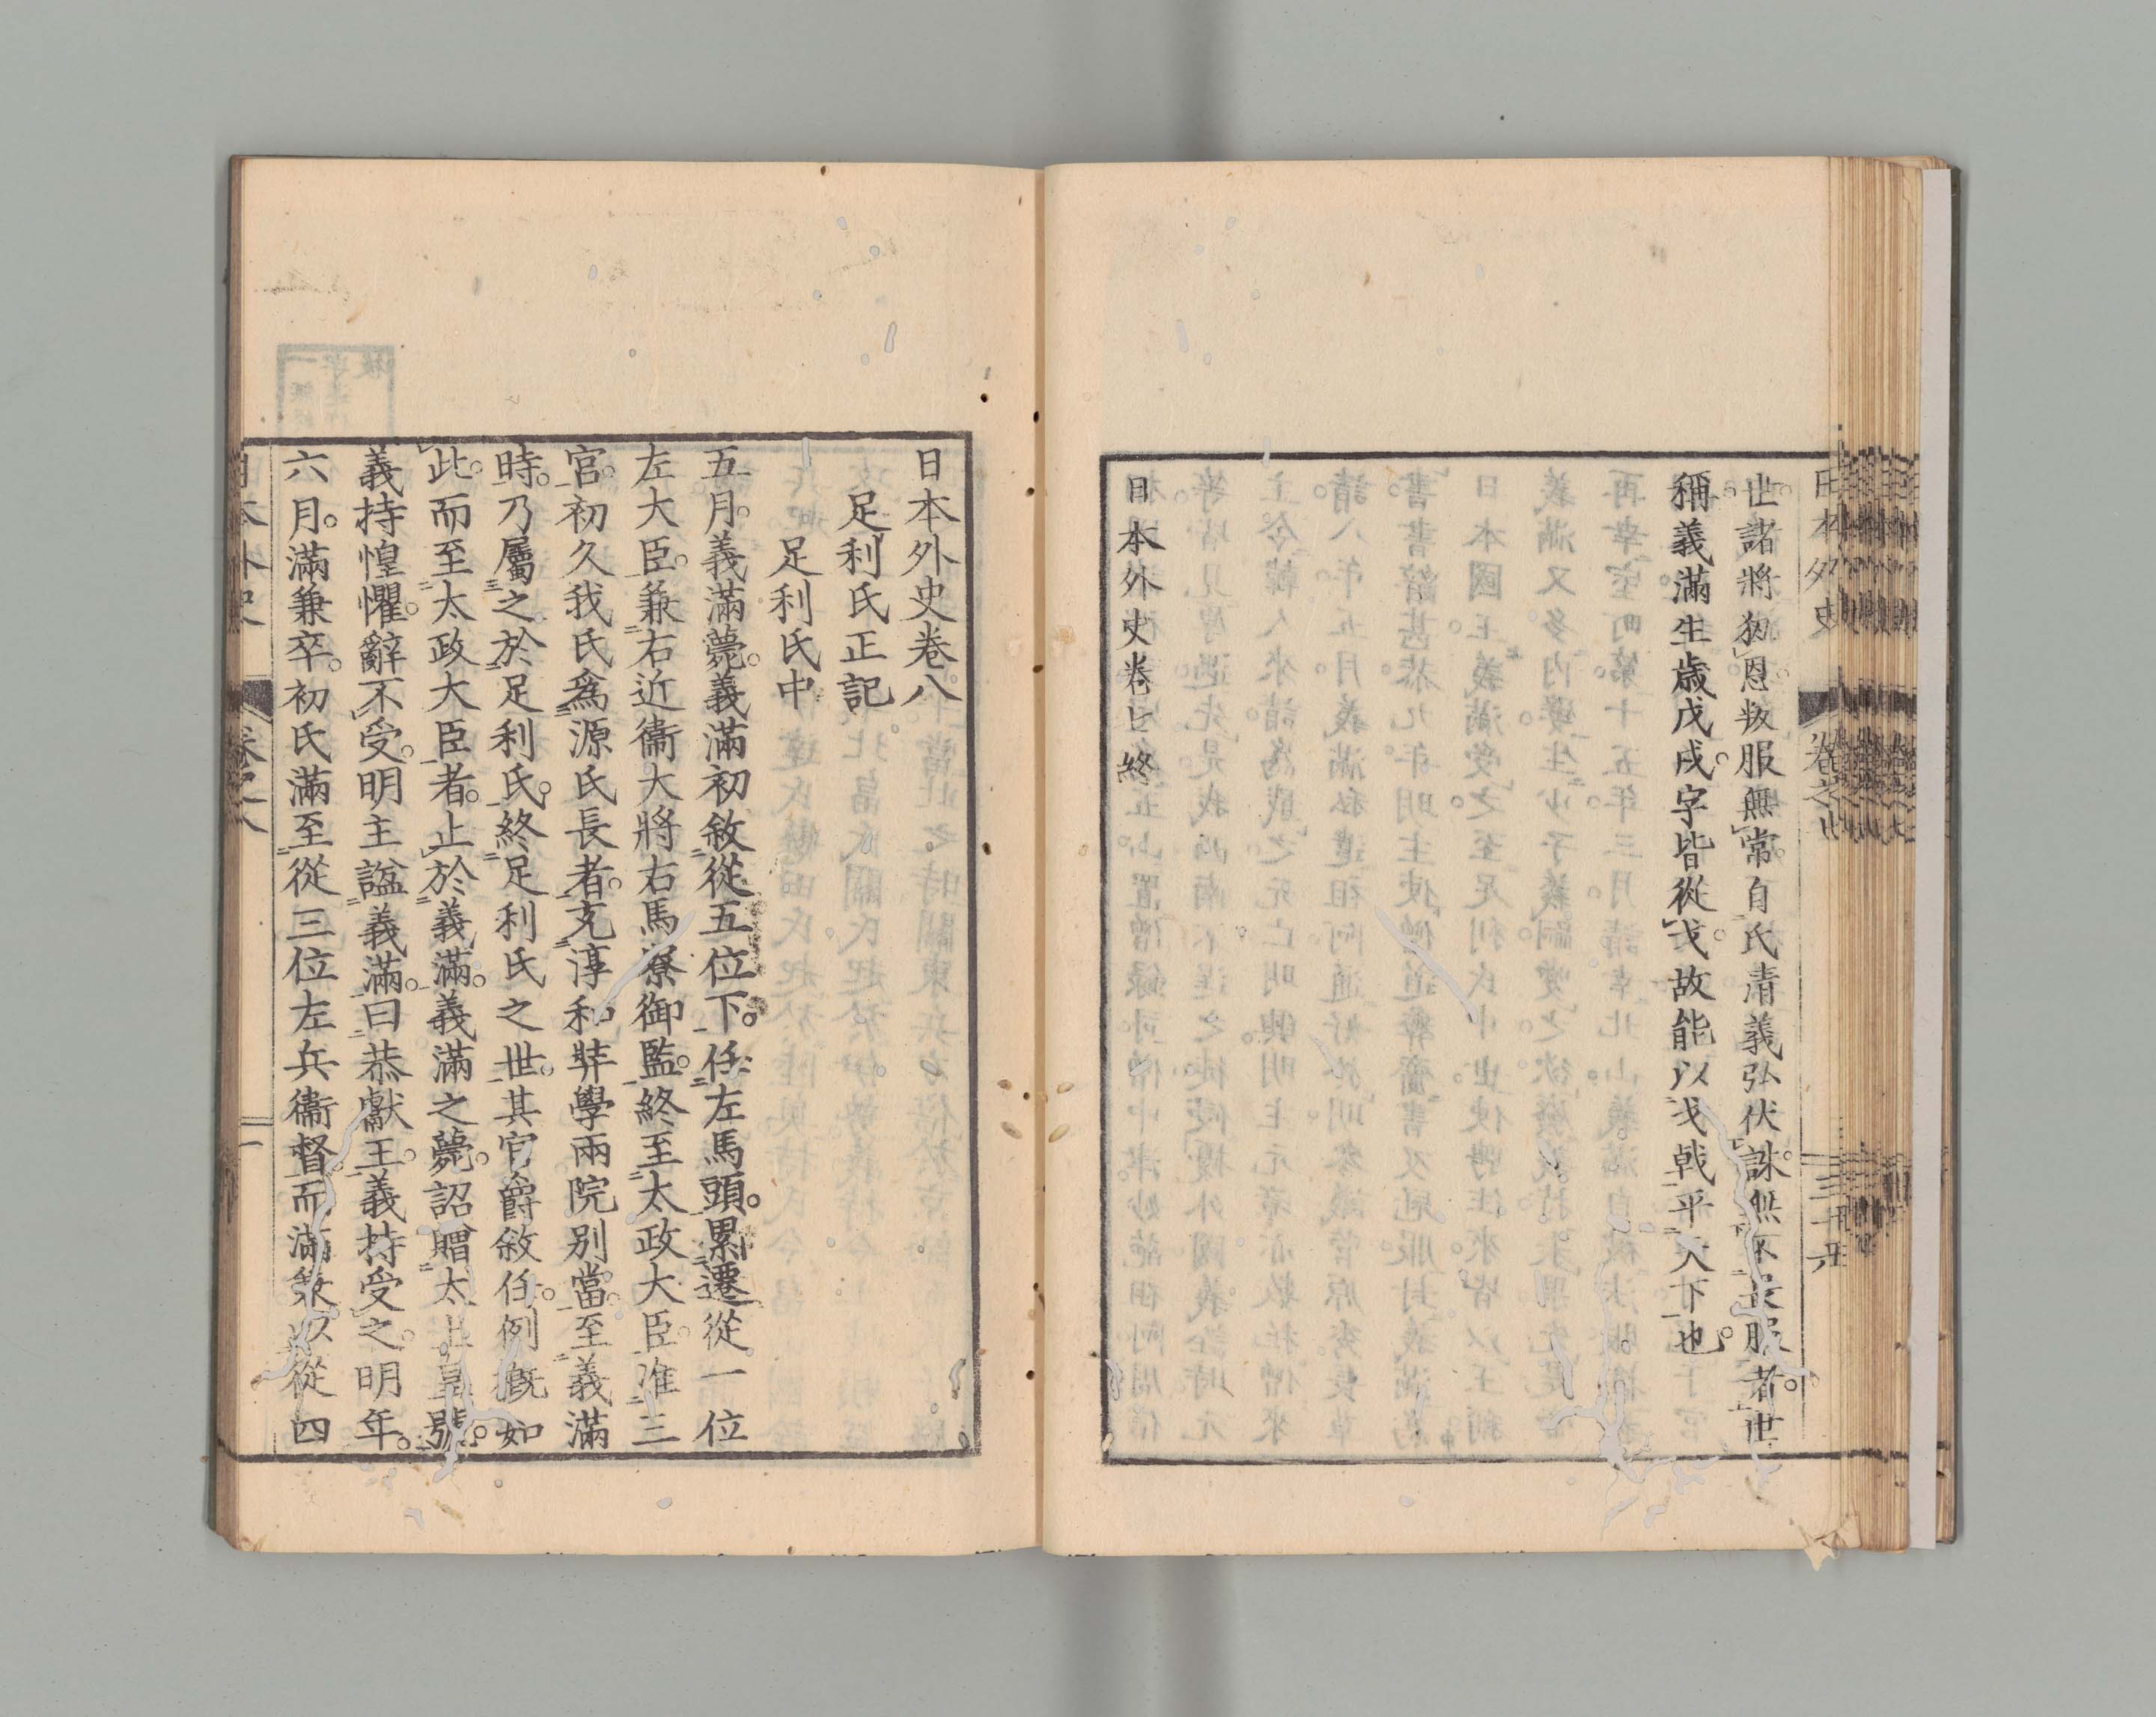 世諸將狃恩叛服無常自氏清義弘伏誅無不畏服者世
稱義滿生歲戊戌字皆從戈故能以戈戟平天下也
日本外史卷七終
日本外史卷八
足利氏正記
足利氏中
五月義滿薨義滿初敘從五位下任左馬頭累遷從一位
左大臣兼右近衞大將右馬寮御監終至太政大臣准三
官初久我氏爲源氏長者充淳和弉學兩院別當至義滿
時乃屬之於足利氏終足利氏之世其官爵敘任例概如
此而至太政大臣者止於義滿義滿之薨詔贈太上皇號
義持惶懼辭不受明主諡義滿曰恭獻王義持受之明年
六月滿兼卒初氏滿至從三位左兵衞督而滿兼以從四
日本外史
卷之八
一